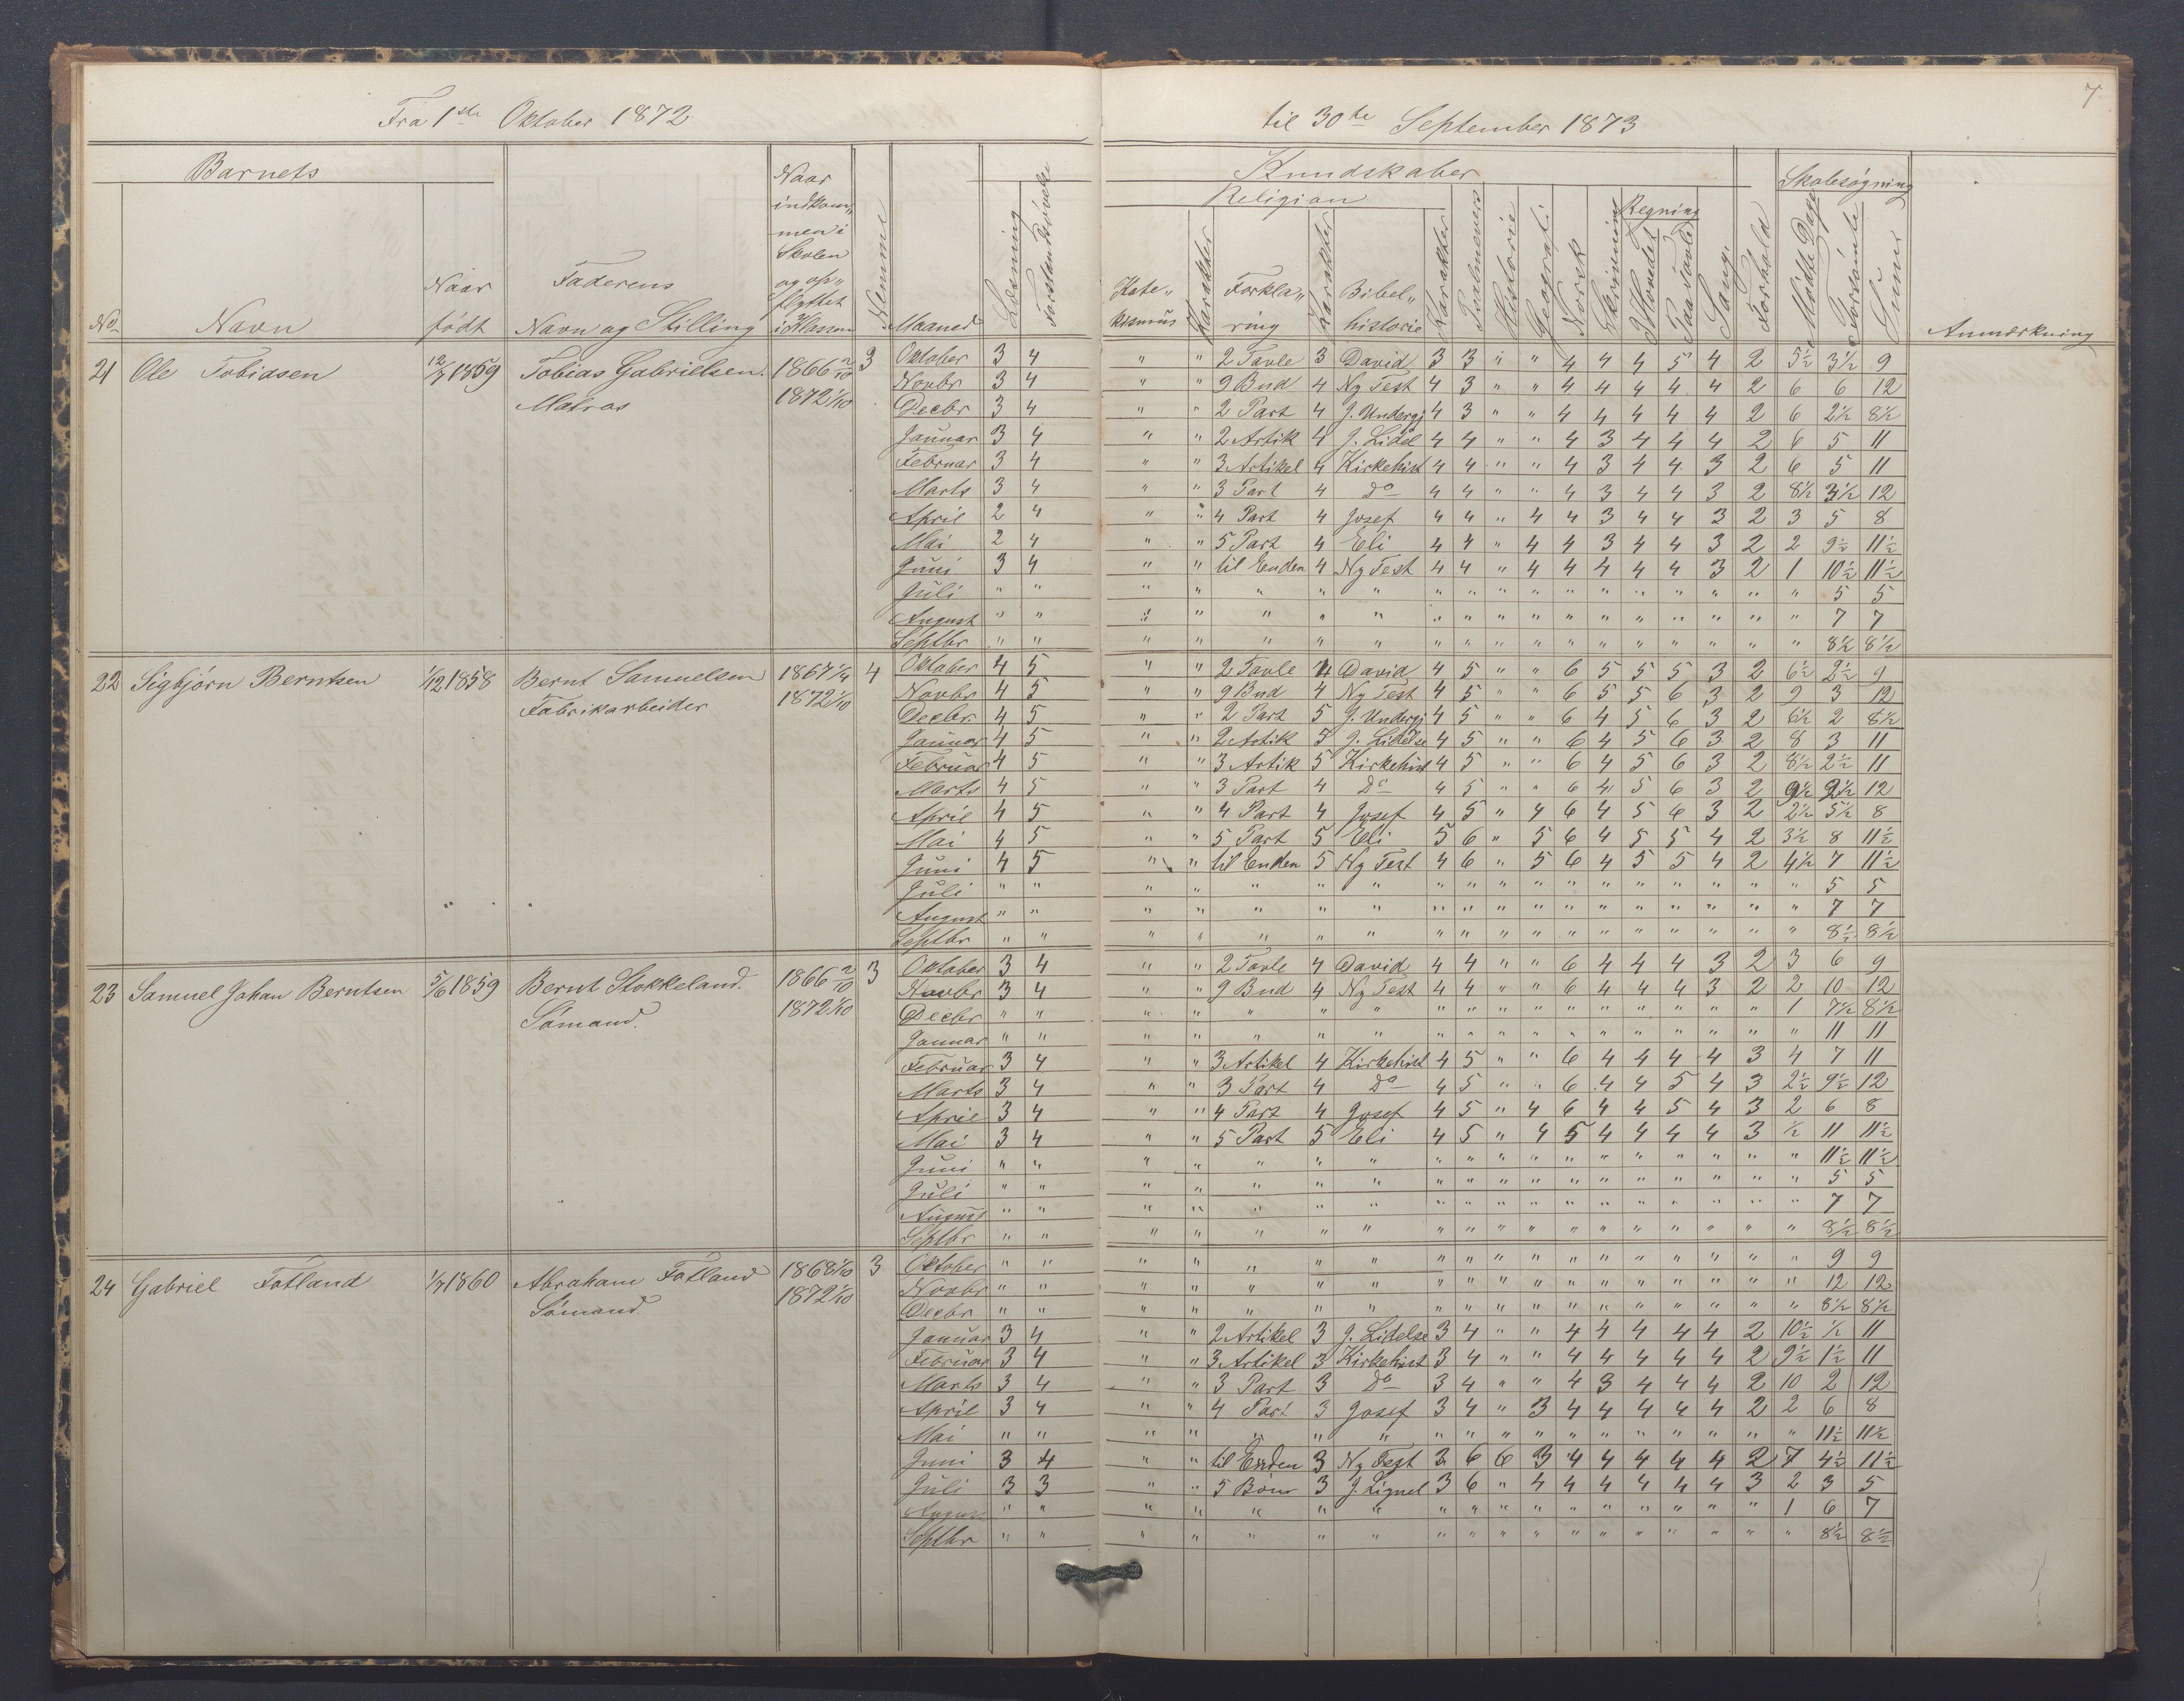 7
Fra 1ste Oktober 1872 til 30te September 1873
Barnets Kundskaber Skolesøgning
Religion Regning
No Navn Naar født Faderens Navn og Stilling Naar indkom„men i Skolen og op„flyttet i 3 Klassen Nemme Maaned Læsning Forstandsøvelse Kate„kismus Karakter Forkla„ring Karakter Bibel„historie Karakter Psalmevers Historie Geografi Norsk Skrivning I Hovedet Paa Tavle Sang Forhold Mödte Dage Forsömte Sum Anmærkning
21 Ole Tobiasen 12/7 1859 Tobias Gabrielsen. 1866 2/10 3 Oktober 3 4 " " 2 Tavle 3 David 3 3 " " 4 4 4 5 4 2 5½ 3½ 9
Matros 1872 1/10 Novbr 3 4 " " 9 Bud 4 Ny Test 4 3 " " 4 4 4 4 4 2 6 6 12
Decbr 3 4 " " 2 Part 4 J. Undergj 4 3 " " 4 4 4 4 4 2 6 2½ 8½
Januar 3 4 " " 2 Artik 4 J. Lidel 4 4 " " 4 3 4 4 4 2 6 5 11
Februar 3 4 " " 3 Artikel 4 Kirkehist 4 4 " " 4 3 4 4 3 2 6 5 11
Marts 3 4 " " 3 Part 4 Do 4 4 " " 4 3 4 4 3 2 8½ 3½ 12
April 2 4 " " 4 Part 4 Josef 4 4 " 4 4 3 4 4 3 2 3 5 8
Mai 2 4 " " 5 Part 4 Eli 4 4 " 4 4 3 4 4 3 2 2 9½ 11½
Juni 3 4 " " til Enden 4 Ny Test 4 4 " 4 4 4 4 4 3 2 1 10½ 11½
Juli " " " " " " " " " " " " " " " " " " 5 5
August " " " " " " " " " " " " " " " " " " 7 7
Septbr " " " " " " " " " " " " " " " " " " 8½ 8½
22 Sigbjørn Berntsen 1/12 1858 Bernt Samuelsen 1867 1/4 4 Oktober 4 5 " " 2 Tavle 4 David 4 5 " " 6 5 5 5 3 2 6½ 2½ 9
Fabrikarbeider 1872 1/10 Novbr 4 5 " " 9 Bud 4 Ny Test 4 5 " " 6 5 5 6 3 2 9 3 12
Decbr. 4 5 " " 2 Part 5 J. Undergj 4 5 " " 6 4 5 6 3 2 6½ 2 8½
Januar 4 5 " " 2 Artik 5 J. Lidelse 4 5 " " 6 4 5 6 3 2 8 3 11
Februar 4 5 " " 3 Artik 5 Kirkehist 4 5 " " 6 4 5 6 3 2 8½ 2½ 11
Marts 4 5 " " 3 Part 4 Do 4 5 " " 6 4 5 6 3 2 9½ 2½ 12
April 4 5 " " 4 Part 4 Josef 4 5 " 4 6 4 5 6 3 2 2½ 5½ 8
Mai 4 5 " " 5 Part 5 Eli 5 6 " 5 6 4 5 5 4 2 3½ 8 11½
Juni 4 5 " " til Enden 5 Ny Test 4 6 " 5 6 4 5 5 4 2 4½ 7 11½
Juli " " " " " " " " " " " " " " " " " " 5 5
August " " " " " " " " " " " " " " " " " " 7 7
Septbr " " " " " " " " " " " " " " " " " " 8½ 8½
23 Samuel Johan Berntsen 5/6 1859 Bernt Stokkeland. 1866 2/10 3 Oktober 3 4 " " 2 Tavle 4 David 4 4 " " 6 4 4 4 3 2 3 6 9
Sömand. 1872 1/10 Novbr 3 4 " " 9 Bud 4 Ny Test 4 4 " " 6 4 4 4 3 2 2 10 12
Decbr " " " " " " " " " " " " " " " " " 1 7½ 8½
Januar " " " " " " " " " " " " " " " " " " 11 11
Februar 3 4 " " 3 Artikel 4 Kirkehist 4 5 " " 6 4 4 4 4 3 4 7 11
Marts 3 4 " " 3 Part 4 Do 4 5 " " 6 4 4 5 4 3 2½ 9½ 12
April 3 4 " " 4 Part 4 Josef 4 5 " 4 6 4 4 5 4 3 2 6 8
Mai 3 4 " " 5 Part 5 Eli 4 5 " 4 5 4 4 4 4 3 ½ 11 11½
Juni " " " " " " " " " " " " " " " " " " 11½ 11½
Juli " " " " " " " " " " " " " " " " " " 5 5
August " " " " " " " " " " " " " " " " " " 7 7
Septbr " " " " " " " " " " " " " " " " " " 8½ 8½
24 Gabriel Fotland 1/7 1860 Abraham Fotland 1868 1/10 3 Oktober " " " " " " " " " " " " " " " " " " 9 9
Sömand. 1872 1/10 Novbr " " " " " " " " " " " " " " " " " " 12 12
Decbr " " " " " " " " " " " " " " " " " " 8½ 8½
Januar 3 4 " " 2 Artikel 3 J. Lidelse 3 4 " " 4 4 4 4 4 2 10½ ½ 11
Februar 3 4 " " 3 Artikel 3 Kirkehist 3 4 " " 4 4 4 4 4 2 9½ 1½ 11
Marts 3 4 " " 3 Part 3 Do 3 4 " " 4 3 4 4 4 2 10 2 12
April 3 4 " " 4 Part 3 Josef 3 4 " 3 4 4 4 4 4 2 2 6 8
Mai " " " " " " " " " " " " " " " " " " 11½ 11½
Juni 3 4 " " til Enden 3 Ny Test 3 6 6 3 4 4 4 4 4 2 7 4½ 11½
Juli 3 3 " " 5 Bön 3 J. Lignel 3 6 " 4 4 4 4 4 4 3 2 3 5
August " " " " " " " " " " " " " " " " " 1 6 7
Septbr " " " " " " " " " " " " " " " " " " 8½ 8½